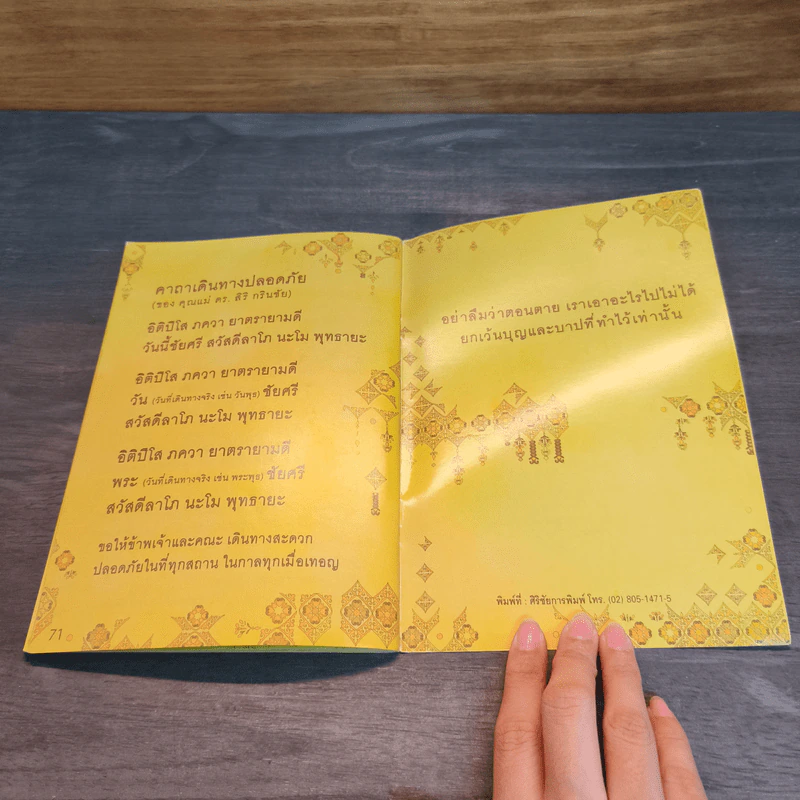 คาถาเดินทางปลอดภัย
(ของ คุณแม่ ดร. สิริ กรินชัย)
อิติปิโส ภควา ยาตรายามดี
วันนี้ชัยศรี สวัสดีลาโภ นะโม พุทธายะ
อิติปิโส ภควา ยาตรายามดี
วัน (วันที่เดินทางจริง เช่น วันพุธ) ชัยศรี
สวัสดีลาโภ นะโม พุทธายะ
อิติปิโส ภควา ยาตรายามดี
พระ (วันที่เดินทางจริง เช่น พระพุธ) ชัยศรี
สวัสดีลาโภ นะโม พุทธายะ
ขอให้ข้าพเจ้าและคณะ เดินทางสะดวก
ปลอดภัยในที่ทุกสถาน ในกาลทุกเมื่อเทอญ
71
อย่าลืมว่าตอนตาย เราเอาอะไรไปไม่ได้
ยกเว้นบุญและบาปที่ทำไว้เท่านั้น
พิมพ์ที่ : ศิริชัยการพิมพ์ โทร. (02) 805-1471-5